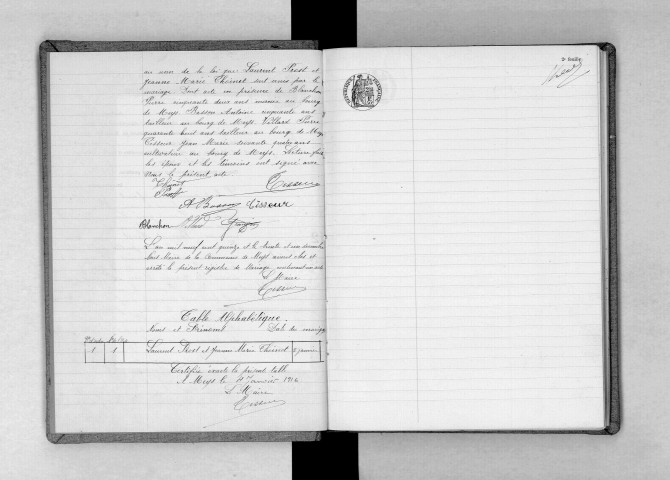 au nom de la loi que Laurent Prost et
Jeanne Marie Thoinet sont unis par le
mariage Dont acte en présence de Blanchon
Pierre cinquante deux ans au bourg
de Meys. Antoine cinquante ans
tailleur au bourg de Meys. Villard Pierre
quarante huit ans tailleur au bourg de Meys
Tisseur Jean Marie soixante quatre ans
cultivateur au bourg de Meys. Lecture faite
les époux et les témoins ont signé avec
nous le présent acte.
Tisseur
Tisseur
Blanchon
L'an mil neuf cent quinze et le trente et un décembre
Nous Maire de la Commune de Meys avons clos et
arrêté le présent registre de Mariage
Le Maire
Tisseur
Table Alphabétique.
Noms et Prénoms Date du mariage
1 1 Laurent Prost et Jeanne Marie Thoinet 2 janvier
Certifiée exacte la présente table
A Meys le Janvier 1916
Le Maire
Tisseur
2e feuille